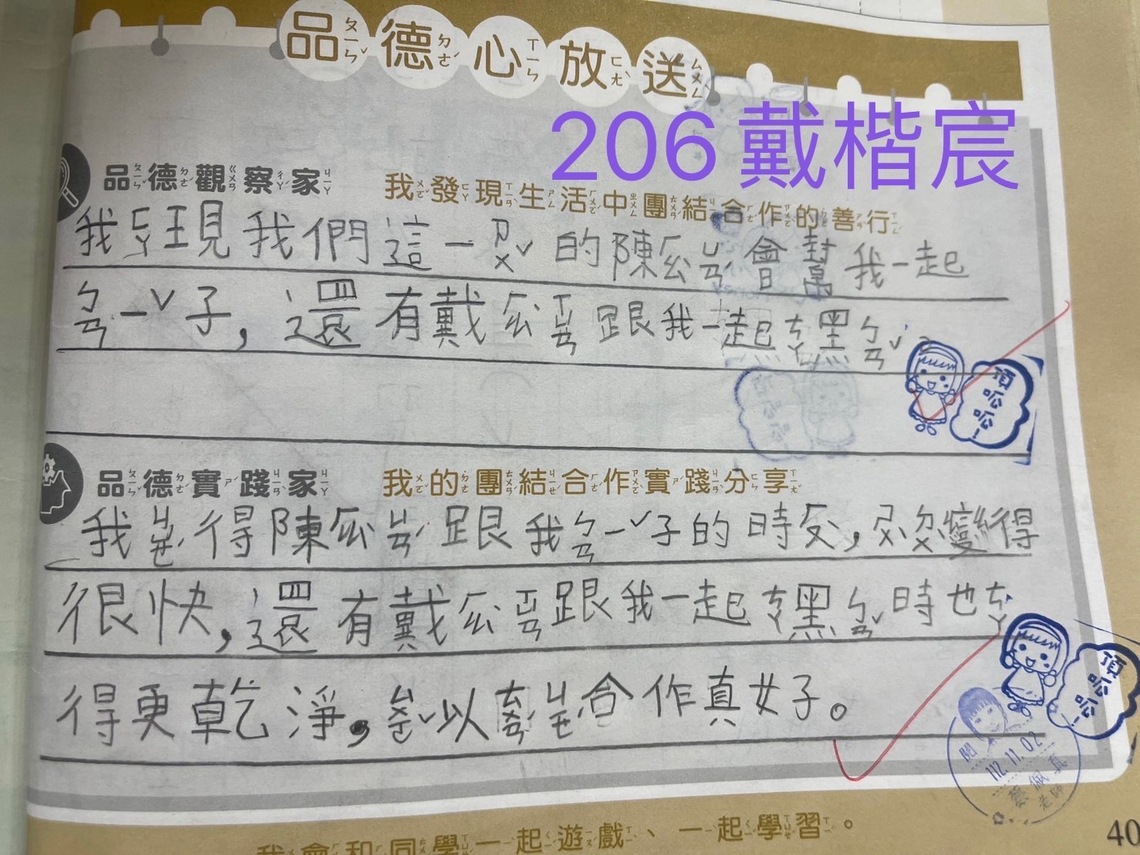 品德心放送
206 戴楷宸
品德觀察家 我發現生活中團結合作的善行
我ㄈㄚ現我們這一ㄗㄨˇ的陳ㄙ
會幫我一起
ㄅㄢ一ˇ子,還有戴
跟我一起ㄘㄚ黑ㄅㄢˇ
頂呱呱!
品德實踐家 我的團結合作實踐分享
我ㄐㄩㄝˊ得陳
跟我ㄅㄢ一ˇ子的時
變得
很快,還有戴
跟我一起ㄘㄚ黑ㄅㄢˇ時也ㄘㄚ
得更乾淨,ㄙㄨㄛˇ以ㄊㄨㄢˊㄐㄧㄝˊ合作真好。
頂呱呱!
112.11.02
老師
我會和同學一起遊戲、一起學習。
40